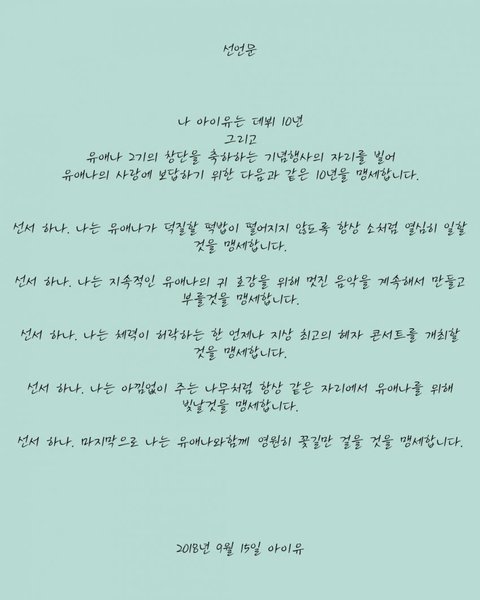 선언문
나 아이유는 데뷔 10년
그리고
유애나 2기의 창단을 축하하는 기념행사의 자리를 빌어
유애나의 사랑에 보답하기 위한 다음과 같은 10년을 맹세합니다.
선서 하나. 나는 유애나가 덕질할 떡밥이 떨어지지 않도록 항상 소처럼 열심히 일할
것을 맹세합니다.
선서 하나. 나는 지속적인 유애나의 귀 호강을 위해 멋진 음악을 계속해서 만들고
부를것을 맹세합니다.
선서 하나. 나는 체력이 허락하는 한 언제나 지상 최고의 혜자 콘서트를 개최할
것을 맹세합니다.
선서 하나. 나는 아낌없이 주는 나무처럼 항상 같은 자리에서 유애나를 위해
빛날것을 맹세합니다.
선서 하나. 마지막으로 나는 유애나와함께 영원히 꽃길만 걸을 것을 맹세합니다.
2018년 9월 15일 아이유